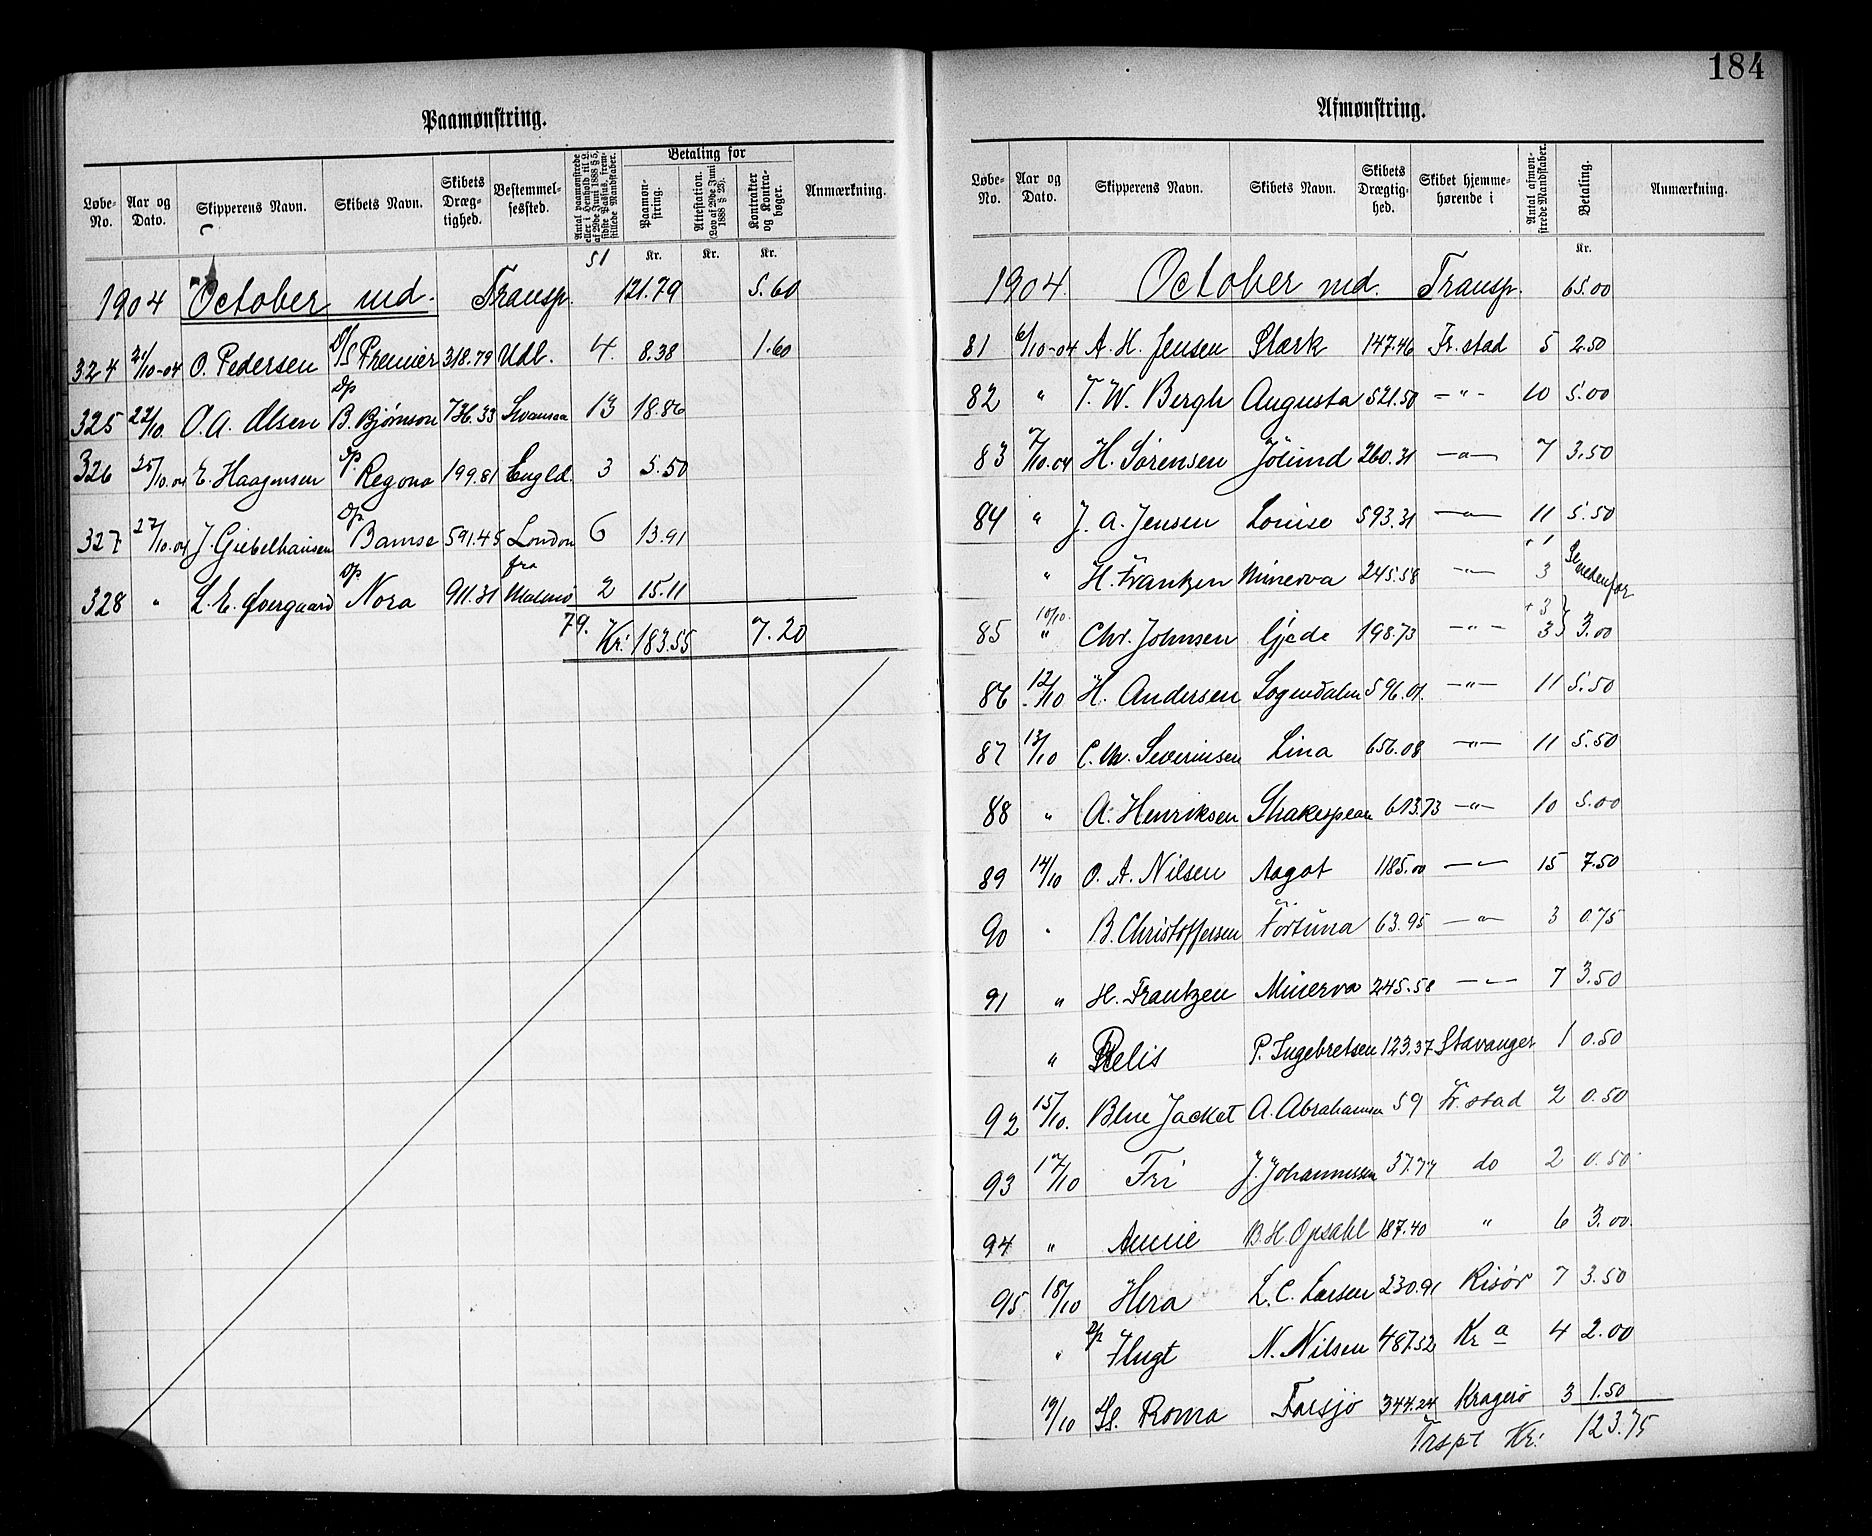 Paamønstring.
Løbe-No. Aar og Dato. Skipperens Navn. Skibets Navn. Skibets Dræg-tighed. Bestemmel-sessted. Antal paamønstrede eller i Henhold til L. af 29de Juni 1888 § 5, sidste Passus, frem-stillede Mandskaber. Betaling for Paamøn-string. Attestation. (Lov af 29de Juni 1888 § 23). Kontrakter og Kontra-bøger. Anmærkning.
51 Kr. Kr. Kr.
1904 October md. Transp. 121.79 5.60
324 21/10-04 O. Pedersen D/S Premier 318.79 Udl. 4. 8.38 1.60
325 22/10. O. A. Olsen Dp B. Bjørnson 736.33 Svansea 13 18.86
326 25/10.04 E. Haagensen Dp. Regona 199.81 Engld. 3 5.50
327 27/10.04 J. Giebelhausen Dp Bamse 591.45 London 6 13.91
328 " L. E. Øvergaard Dp Nora 911.31 fra Malmö 2 15.11
79. Kr: 183.55 7.20
184
Afmønstring.
Løbe-No. Aar og Dato. Skipperens Navn. Skibets Navn. Skibets Drægtig-hed. Skibet hjemme-hørende i Antal afmøn-strede Mandskaber. Betaling. Anmærkning.
Kr.
1904. October md. Transp. 65.00
81 6/10-04 A. H. Jensen Stærk 147.46 Fr. stad 5 2.50
82 " T. W. Bergh Augusta 521.50 -"- 10 5.00
83 7/10.04 H. Sörensen Jölund 260.31 -"- 7 3.50
84 " J. A. Jensen Louise 593.31 -"- 11 5.50
" H. Frantzen Minerva 245.58 -"- + 1 3
85 10/10. " Chr. Johnsen Gjede 198.73 -"- + 3 3 } 3.00
86 12/10 H. Andersen Sogndalen 596.01. -"- 11 5.50
87 13/10 C. M. Severinsen Lina 656.08 -"- 11 5.50
88 " A. Henriksen Shakespeare 613.73 -"- 10 5.00
89 14/10 O. A. Nilsen Aagot 1185.00 -"- 15 7.50
90 " B. Christoffersen Fortuna 63.95 -"- 3 0.75
91 " H. Frantzen Minerva 245.58 -"- 7 3.50
" Relis P. Ingebretsen 123.37 Stavanger 1 0.50
92 15/10. Blue Jacket A. Abrahamsen 59 Fr. stad 2 0.50
93 17/10 Fri J. Johannessen 37.77 do 2 0.50
94 " Annie B. H. Opsahl 187.40 " 6 3.00
95 18/10 Hera L. C. Larsen 230.91 Risör 7 3.50
" Dp Flugt N. Nilsen 487.52 Kr a 4 2.00
19/10 Ss. Roma Farsjö 344.24 Kragerö 3 1.50
Trspt Kr: 123.75